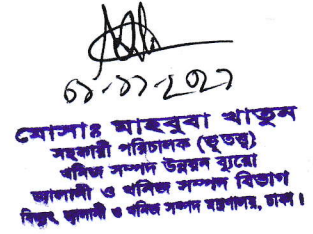 ০১-১১-২০২১
মোসাঃ মাহবুবা খাতুন
সহকারী পরিচালক (ভূতত্ত্ব)
খনিজ সম্পদ উন্নয়ন ব্যুরো
জ্বালানী ও খনিজ সম্পদ বিভাগ
বিদ্যুৎ, জ্বালানী ও খনিজ সম্পদ মন্ত্রণালয়, ঢাকা।